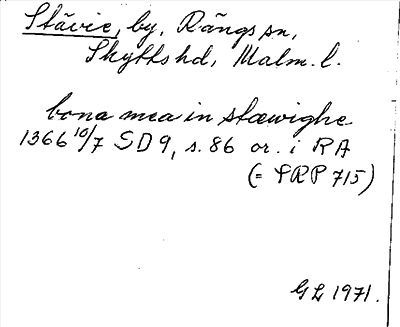 Stävie, by, Rängs sn,
Skytts hd, Malm. l.
bona mea in stæwighe
1366 10/7 SD 9, s. 86 or. i RA
(= SRP 715)
GL 1971.